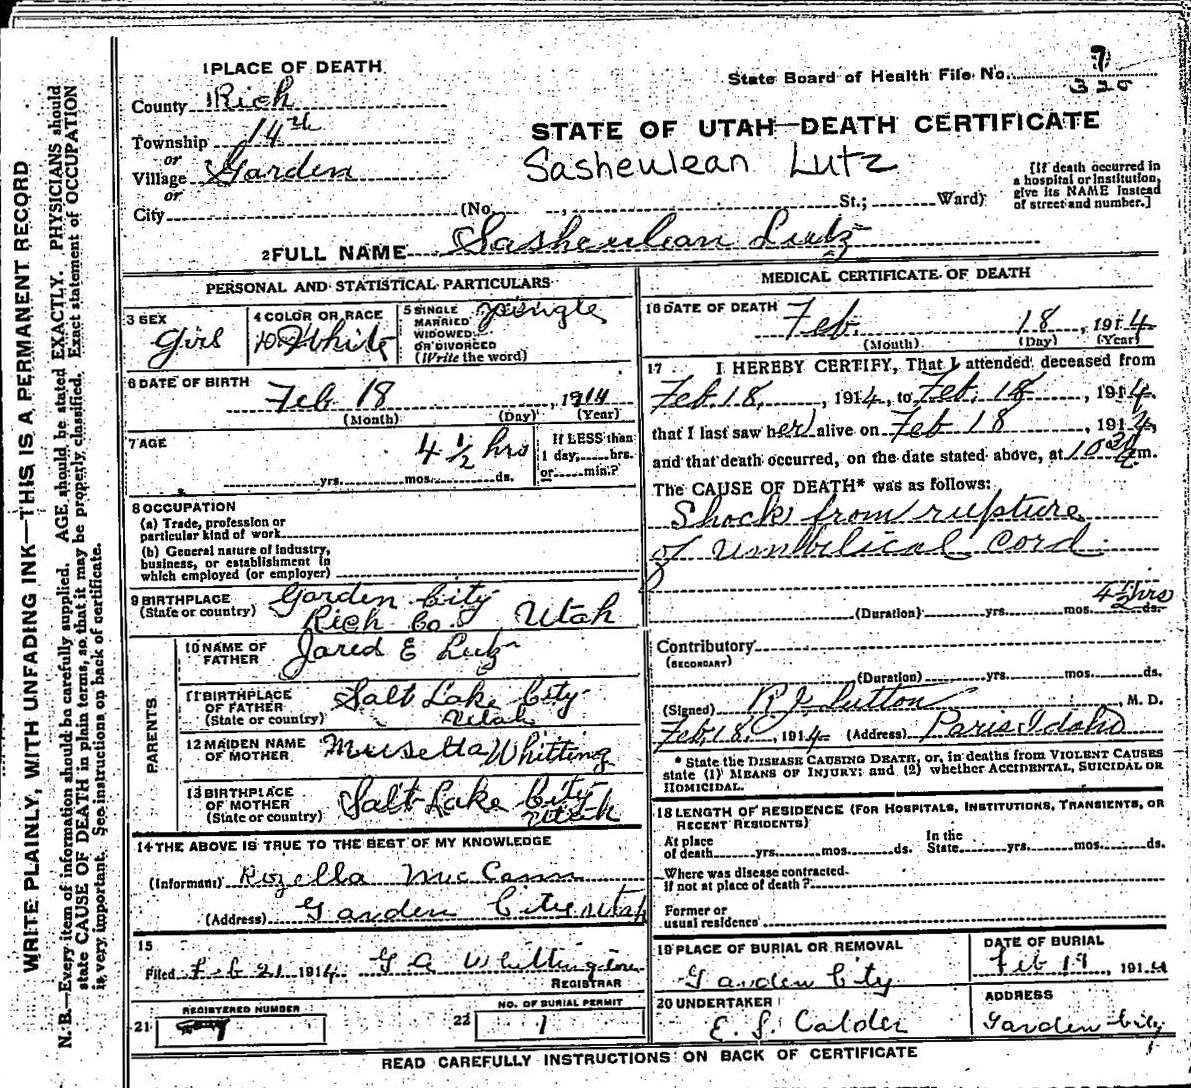 WRITE PLAINLY, WITH UNFADING INK—THIS IS A PERMANENT RECORD
N. B.—Every item of information should be carefully supplied. AGE should be stated EXACTLY. PHYSICIANS should
state CAUSE OF DEATH in plain terms, so that it may be properly classified. Exact statement of OCCUPATION
is very important. See instructions on back of certificate.
1 PLACE OF DEATH
State Board of Health File No. 7
325
County Rich
Township 14th
or
Village Garden
or
City (No. , St.; Ward)
STATE OF UTAH—DEATH CERTIFICATE
Sasheulean Lutz
[If death occurred in
a hospital or institution,
give its NAME instead
of street and number.]
2 FULL NAME Sasheulean Lutz
PERSONAL AND STATISTICAL PARTICULARS
3 SEX
Girl
4 COLOR OR RACE
White
5 SINGLE
MARRIED
WIDOWED
OR DIVORCED
(Write the word)
Single
6 DATE OF BIRTH
Feb 18, 1914
(Month) (Day) (Year)
7 AGE
4 1/2 hrs
yrs. mos. ds.
If LESS than
1 day, hrs.
or min.?
8 OCCUPATION
(a) Trade, profession or
particular kind of work
(b) General nature of industry,
business, or establishment in
which employed (or employer)
9 BIRTHPLACE
(State or country)
Garden City
Rich Co. Utah
PARENTS
10 NAME OF
FATHER
Jared E Lutz
11 BIRTHPLACE
OF FATHER
(State or country)
Salt Lake City
Utah
12 MAIDEN NAME
OF MOTHER
Musetta Whitting
13 BIRTHPLACE
OF MOTHER
(State or country)
Salt Lake City
Utah
14 THE ABOVE IS TRUE TO THE BEST OF MY KNOWLEDGE
(Informant) Rozella McCann
(Address) Garden City Utah
15
Filed Feb 21 1914 G A Whittington
REGISTRAR
21 REGISTERED NUMBER
22 NO. OF BURIAL PERMIT
1
MEDICAL CERTIFICATE OF DEATH
16 DATE OF DEATH
Feb. 18, 1914
(Month) (Day) (Year)
17 I HEREBY CERTIFY, That I attended deceased from
Feb. 18, 1914, to Feb. 18, 1914
that I last saw her alive on Feb 18, 1914,
and that death occurred, on the date stated above, at 10 30 m.
The CAUSE OF DEATH* was as follows:
Shock from rupture
of umbilical cord
4 1/2 hrs
(Duration) yrs. mos. ds.
Contributory
(SECONDARY)
(Duration) yrs. mos. ds.
(Signed) R J Sutton M. D.
Feb. 18, 1914 (Address) Paris, Idaho
* State the DISEASE CAUSING DEATH, or, in deaths from VIOLENT CAUSES
state (1) MEANS OF INJURY; and (2) whether ACCIDENTAL, SUICIDAL OR
HOMICIDAL.
18 LENGTH OF RESIDENCE (FOR HOSPITALS, INSTITUTIONS, TRANSIENTS, OR
RECENT RESIDENTS)
At place
of death yrs. mos. ds.
In the
State yrs. mos. ds.
Where was disease contracted.
if not at place of death?
Former or
usual residence
19 PLACE OF BURIAL OR REMOVAL
Garden City
DATE OF BURIAL
Feb 19, 1914
20 UNDERTAKER
E. S. Calder
ADDRESS
Garden City
READ CAREFULLY INSTRUCTIONS ON BACK OF CERTIFICATE